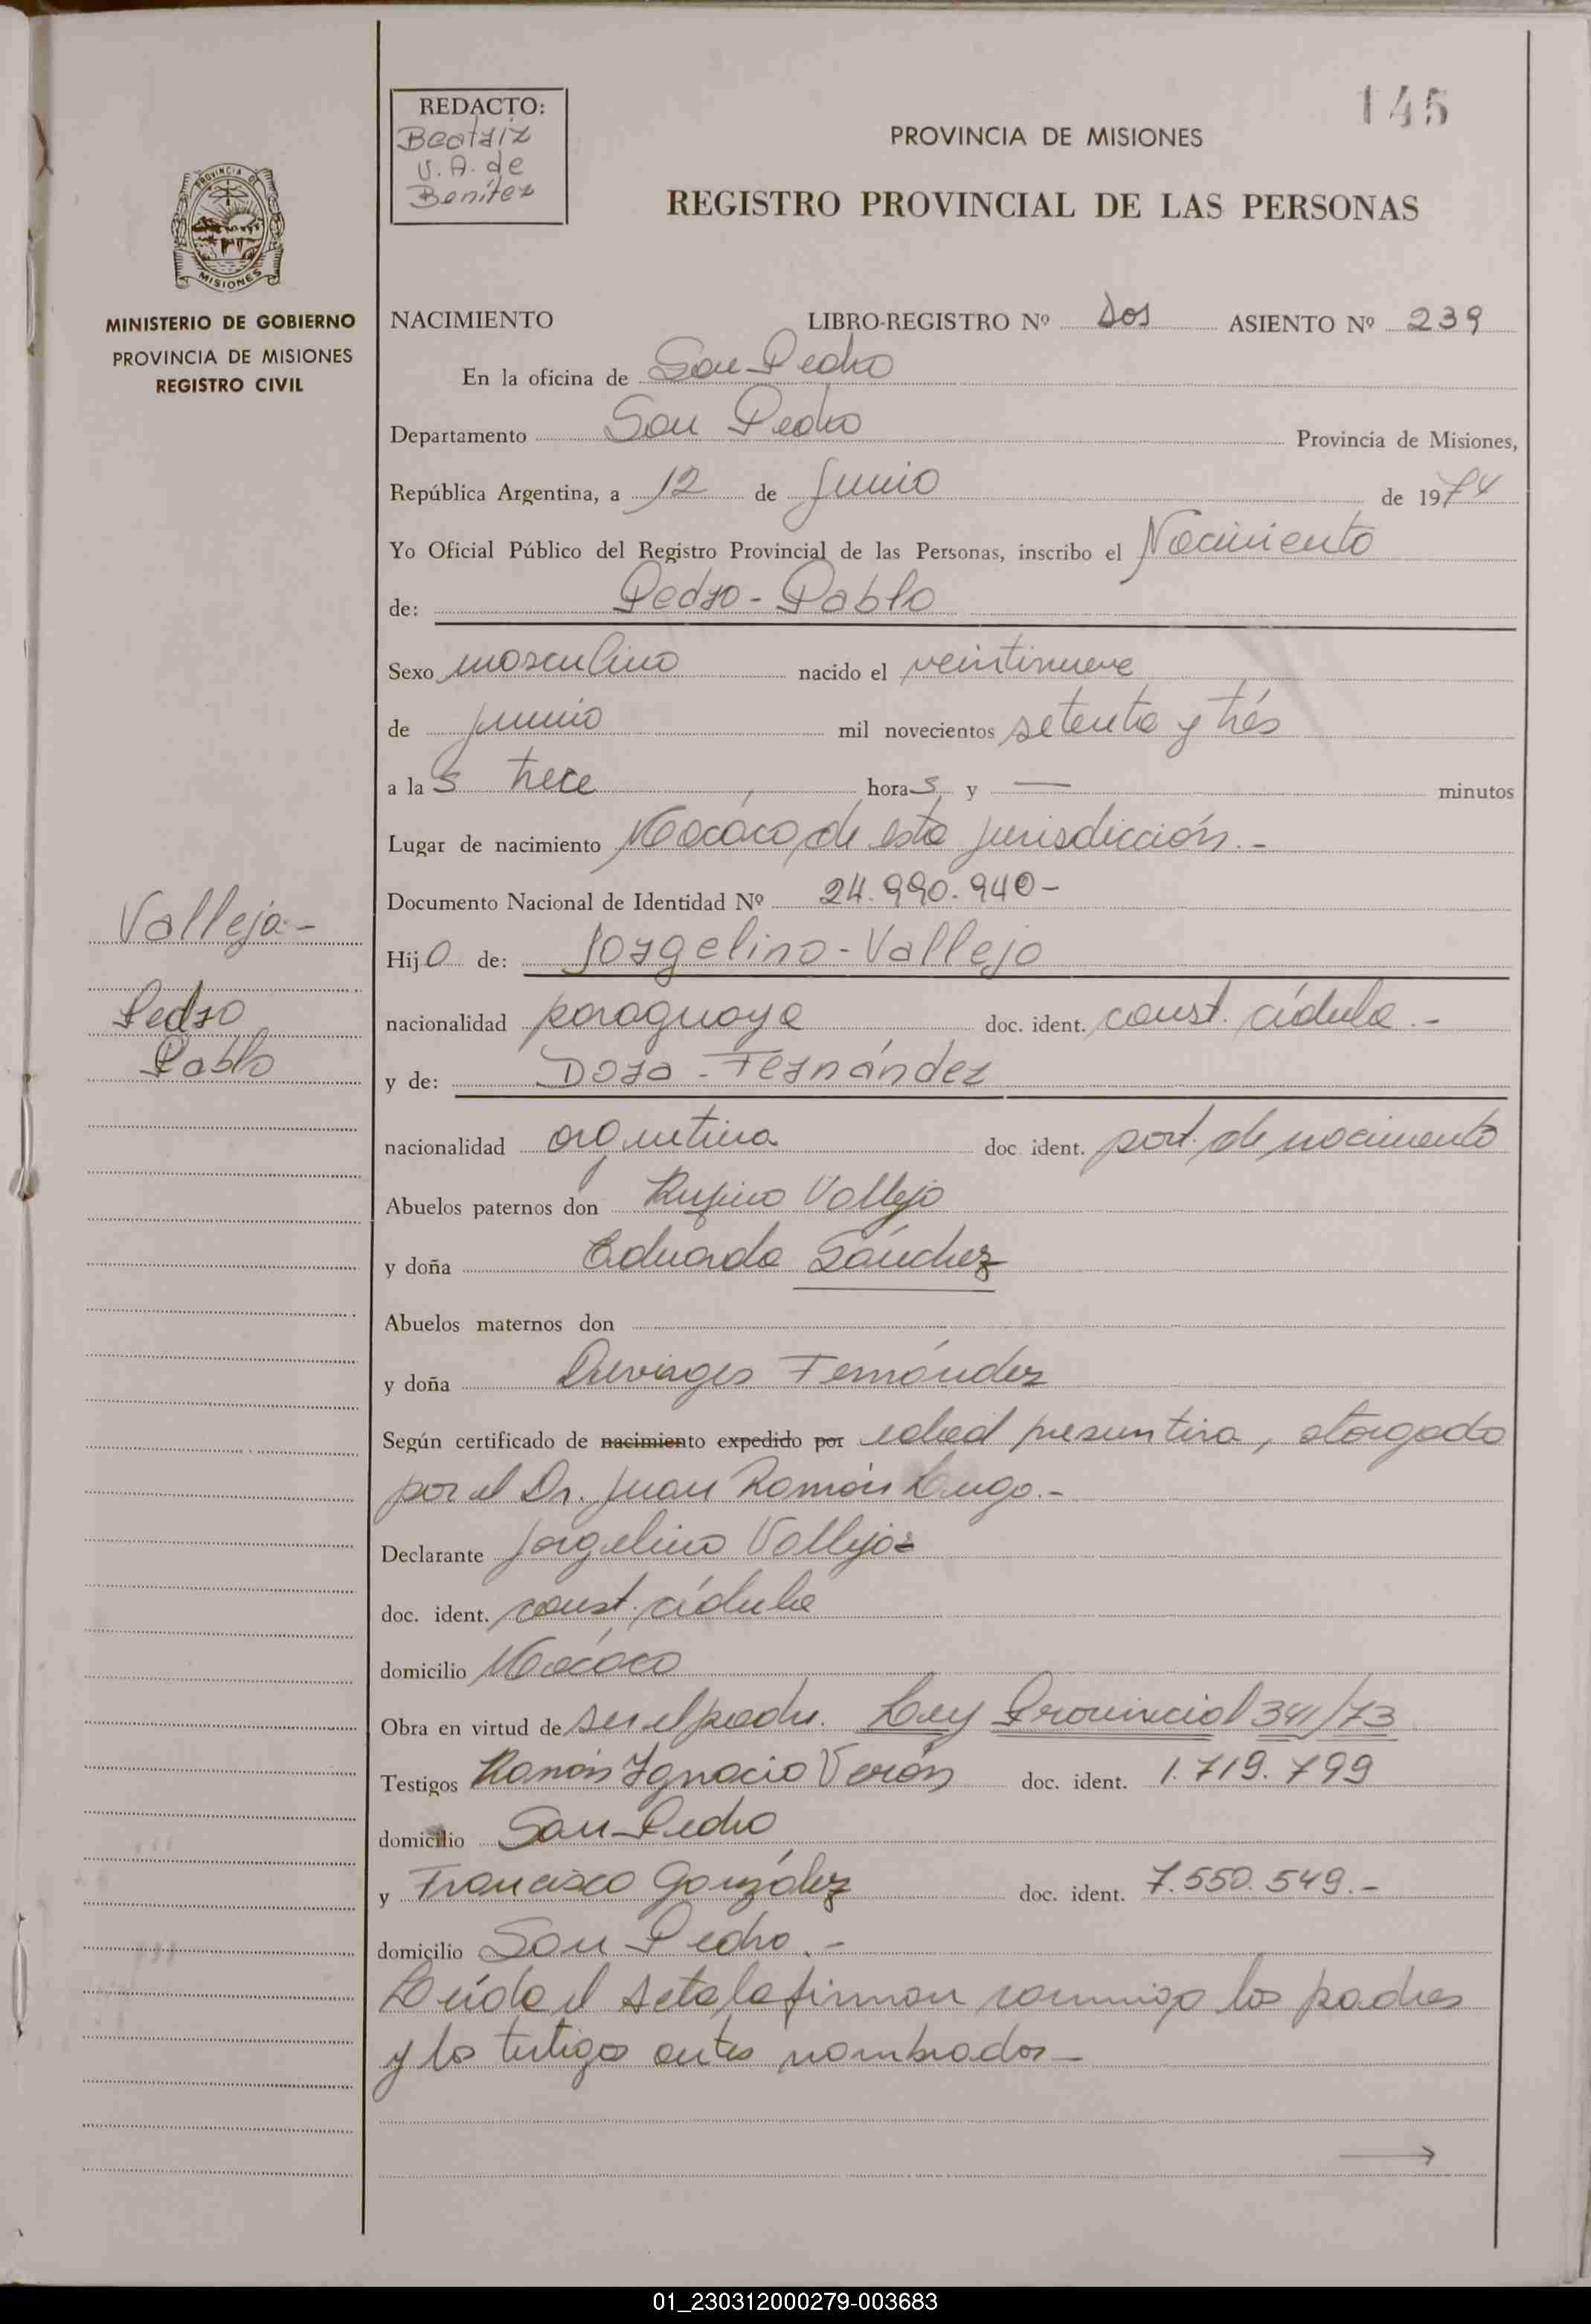 145
REDACTO:
Beatriz
V. A. de
Benítez
PROVINCIA DE MISIONES
REGISTRO PROVINCIAL DE LAS PERSONAS
PROVINCIA DE
MISIONES
MINISTERIO DE GOBIERNO
PROVINCIA DE MISIONES
REGISTRO CIVIL
NACIMIENTO LIBRO-REGISTRO Nº Dos ASIENTO Nº 239
En la oficina de San Pedro
Departamento San Pedro Provincia de Misiones,
República Argentina, a 12 de Junio de 1974
Yo Oficial Público del Registro Provincial de las Personas, inscribo el Nacimiento
de: Pedro - Pablo
Sexo masculino nacido el veintinueve
de junio mil novecientos setenta y trés
a las trece horas y — minutos
Lugar de nacimiento de esta jurisdicción.-
Documento Nacional de Identidad Nº 24.990.940-
Vallejo.-
Pedro
Pablo
Hijo de: Jorgelino - Vallejo
nacionalidad paraguaya doc. ident. const. cédula.-
y de: Dora - Fernández
nacionalidad argentina doc. ident. part. de nacimiento
Abuelos paternos don Rufino Vallejo
y doña Eduarda Sánchez
Abuelos maternos don
y doña Fernández
Según certificado de nacimiento expedido por edad presuntiva, otorgado
por el Dr. Juan Ramón Lugo.-
Declarante Jorgelino Vallejo=
doc. ident. const. cédula
domicilio
Obra en virtud de ser el padre. Ley Provincial 341/73
Testigos Ramón Ignacio Verón doc. ident. 1.719.799
domicilio San Pedro
y Francisco González doc. ident. 7.550.549.-
domicilio San Pedro.-
Leída el acta la firman conmigo los padres
y los testigos antes nombrados-
01_230312000279-003683